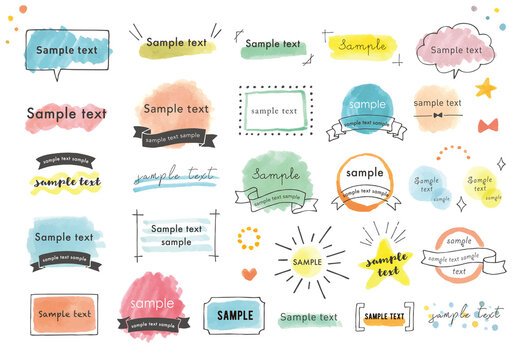 Sample text
Sample text
Sample text
Sample
Sample text
Sample text
Sample text
sample text sample
sample text
sample
sample text sample
sample text
sample text sample
sample text
sample text
Sample
sample text sample
sample
sample text sample
sample
text
sample
sample
text
sample
Sample text
sample text sample
Sample text
sample
SAMPLE
sample
text
sample
sample text
text
Sample text
sample
sample text sample
SAMPLE
Sample text
SAMPLE TEXT
sample text